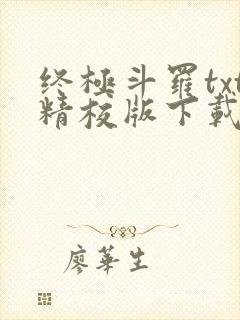 终極斗羅txt
精校版下載
廖華生